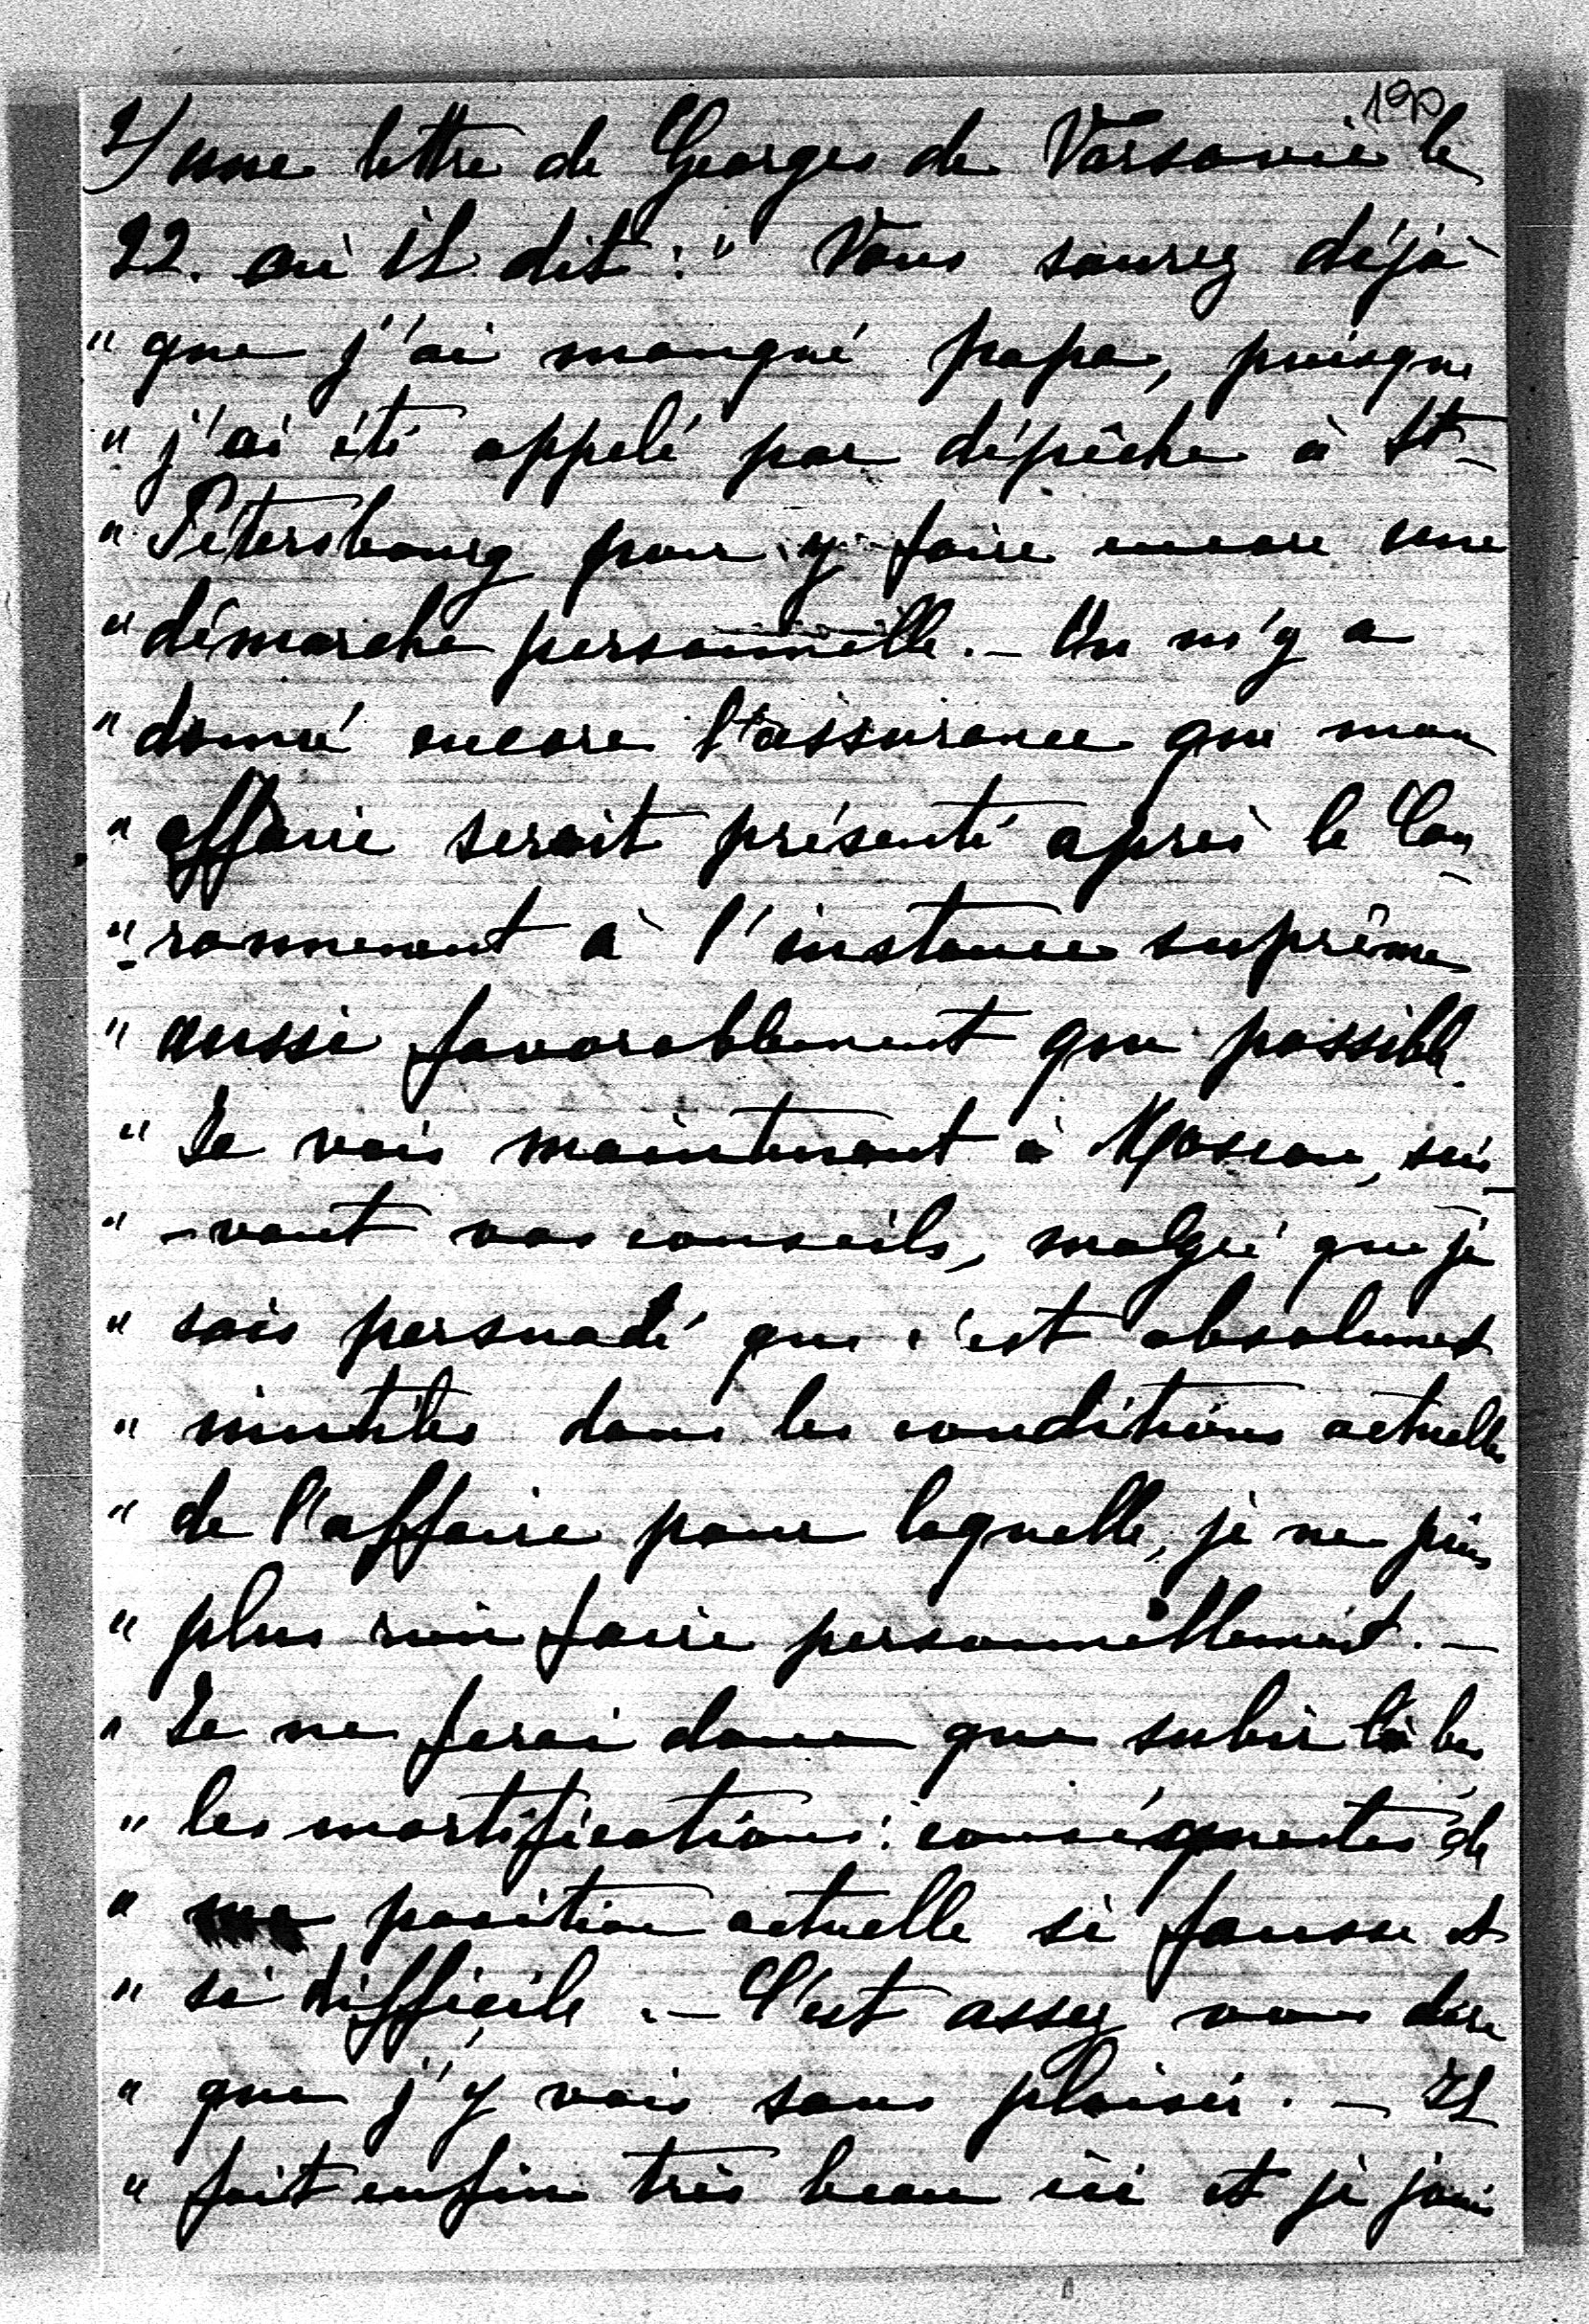 190
2/ une lettre de Georges de Varsovie le
22. où il dit : " Vous saurez déjà
" que j'ai manqué papa, puisque
" j'ai été appelé par dépêche à St-
" Pétersbourg pour y faire encore une
" démarche personnelle. - On m'y a
" donné encore l'assurance que mon
" affaire serait présenté après le Cou-
" ronnement à l'instance suprême
" aussi favorablement que possible.
" Je vais maintenant à Moscou, sui-
" -vant vos conseils, malgré que je
" sois persuadé que c'est absolument
" inutiles dans les conditions actuelles
" de l'affaire pour laquelle, je ne puis
" plus rien faire personnellement. -
" Je ne ferai donc que subir là bas
" les mortifications conséquentes de
" ma position actuelle si fausse et
" si difficile. - C'est assez vous dire
" que j'y vais sans plaisir. - Il
" fait enfin très beau ici et je jouis